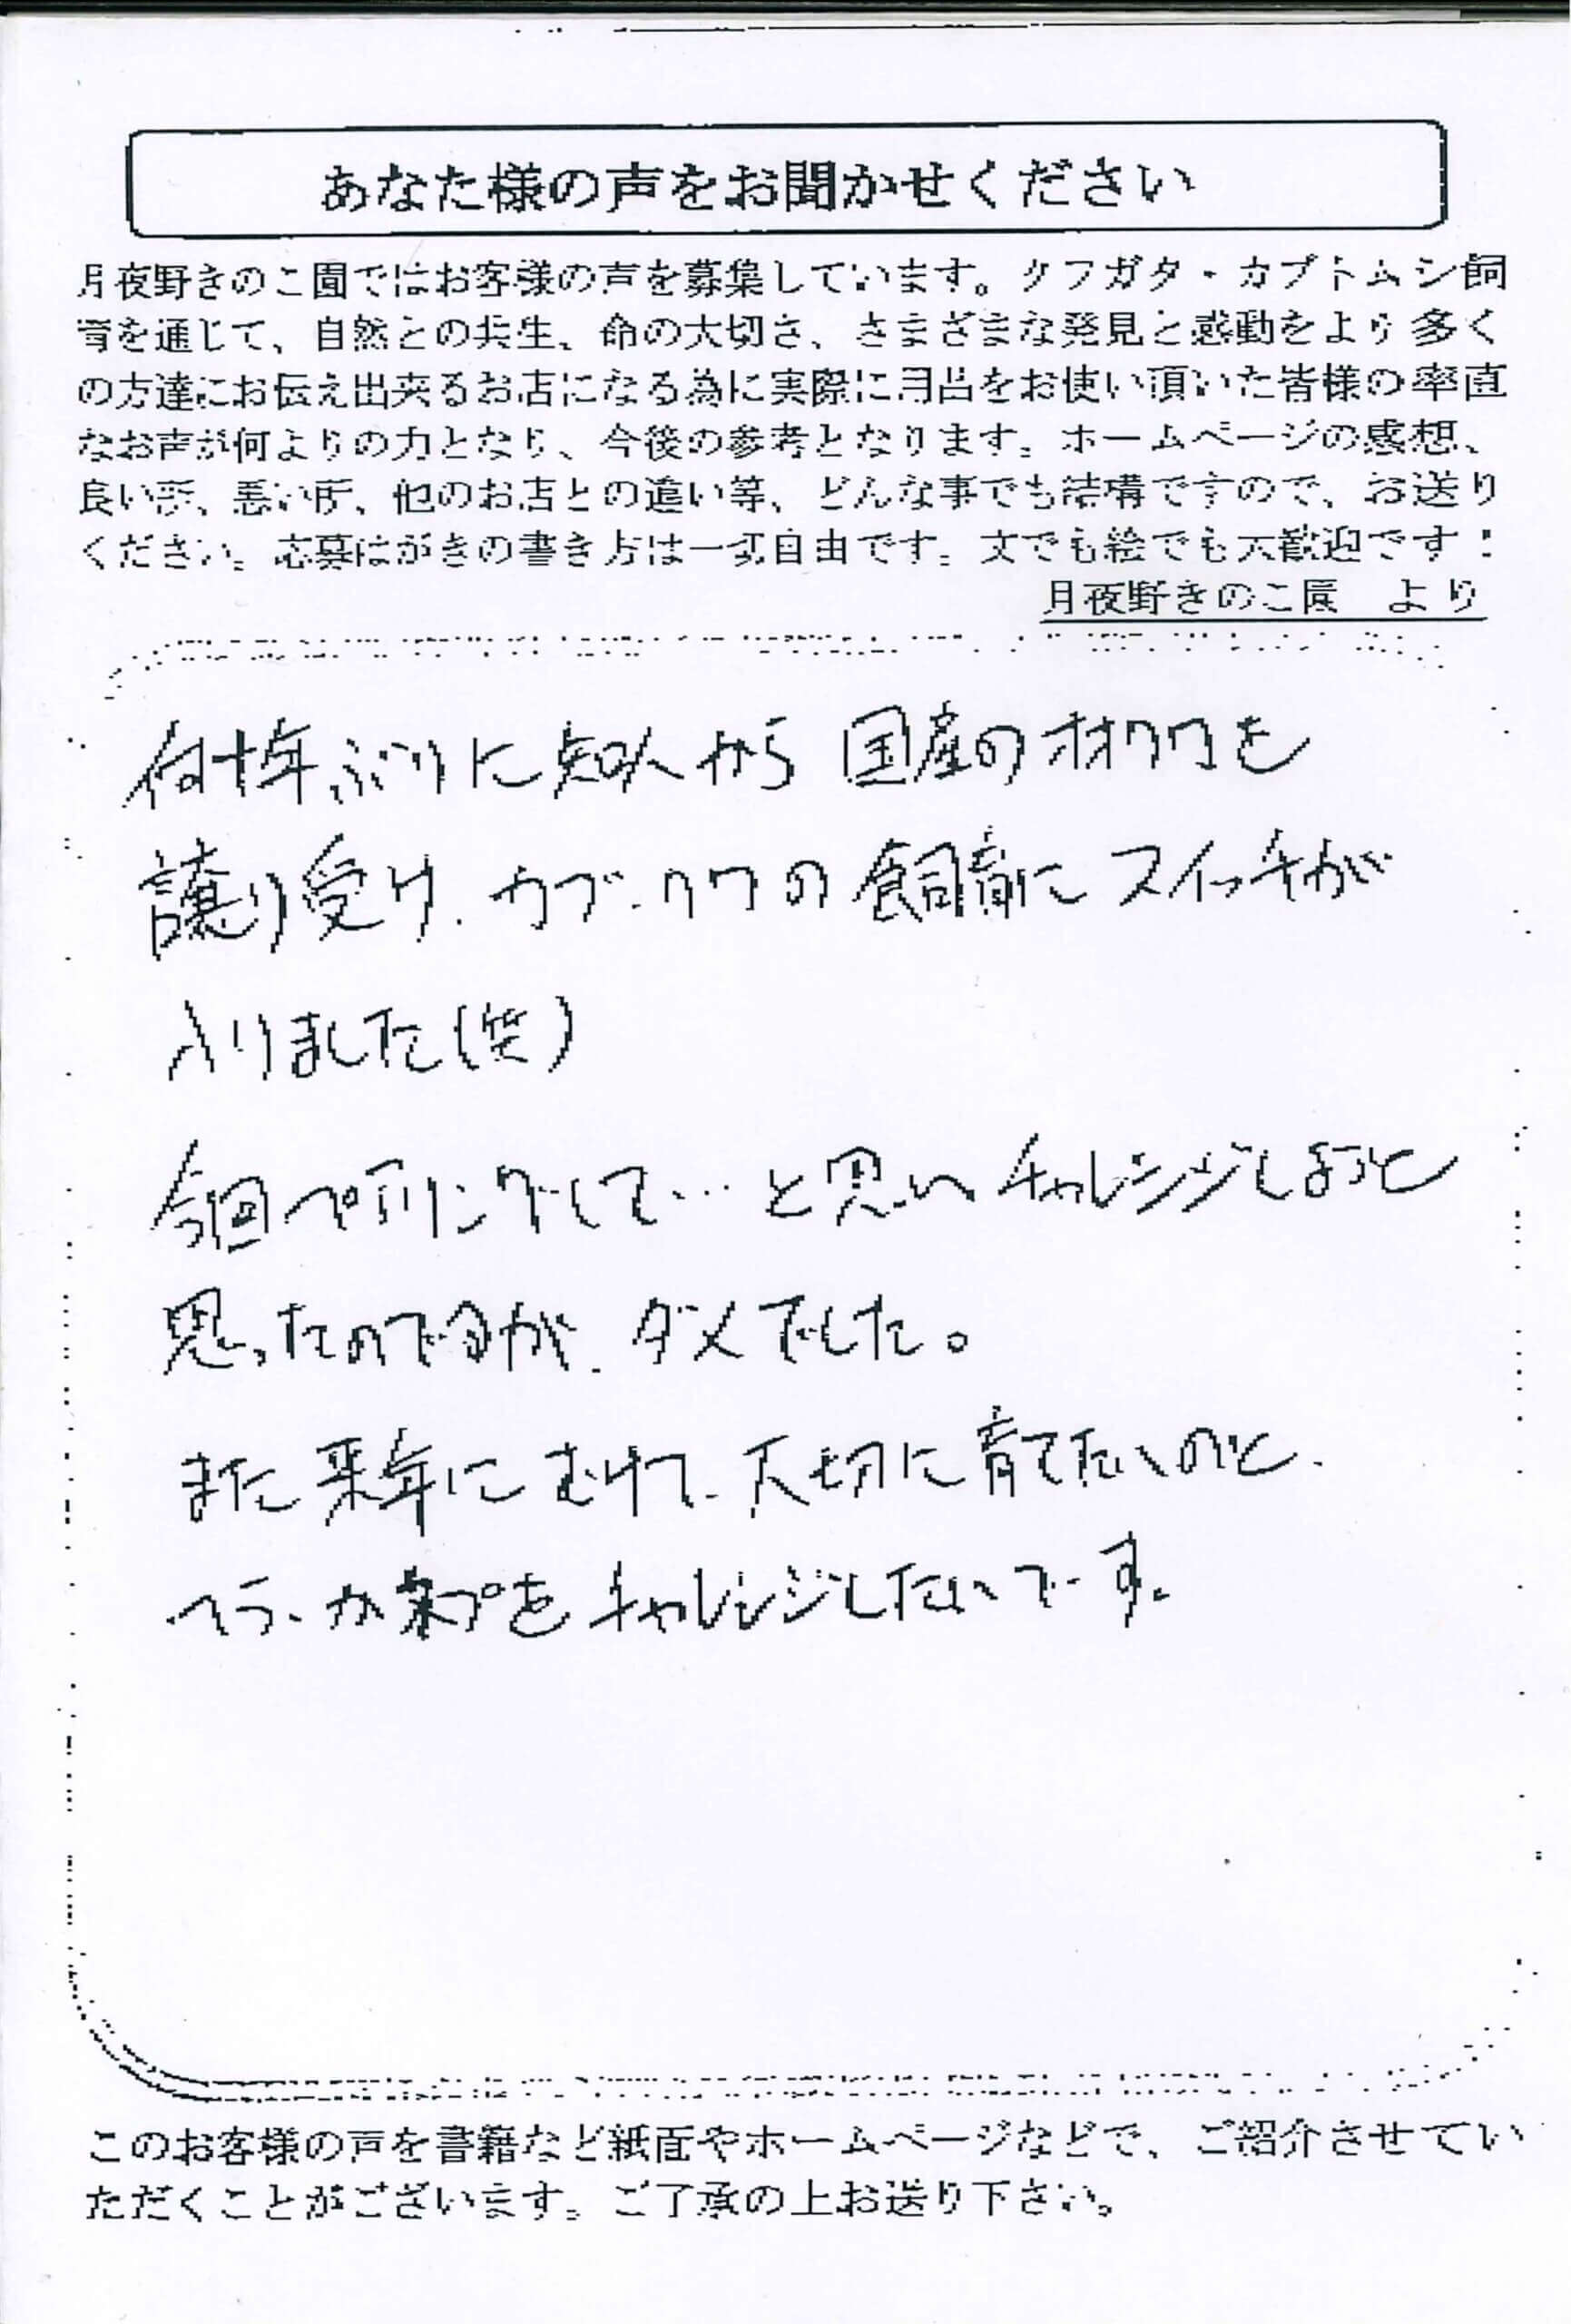 あなた様の声をお聞かせください
月夜野きのこ園ではお客様の声を募集しています。クワガタ・カブトムシ飼
育を通じて、自然との共生、命の大切さ、さまざまな発見と感動をより多く
の方達にお伝え出来るお店になる為に実際に用品をお使い頂いた皆様の率直
なお声が何よりの力となり、今後の参考となります。ホームページの感想、
良い所、悪い所、他のお店との違い等、どんな事でも結構ですので、お送り
ください。応募はがきの書き方は一切自由です。文でも絵でも大歓迎です！
月夜野きのこ園 より
何十年ぶりに知人から国産のオオクワを
譲り受け、カブ・クワの飼育にスイッチが
入りました(笑)
今回ペアリングして…と思いチャレンジしようと
思ったのですが、ダメでした。
また来年にむけて、大切に育てたいのと、
ヘラ、カをチャレンジしたいです。
このお客様の声を書籍など紙面やホームページなどで、ご紹介させてい
ただくことがございます。ご了承の上お送り下さい。